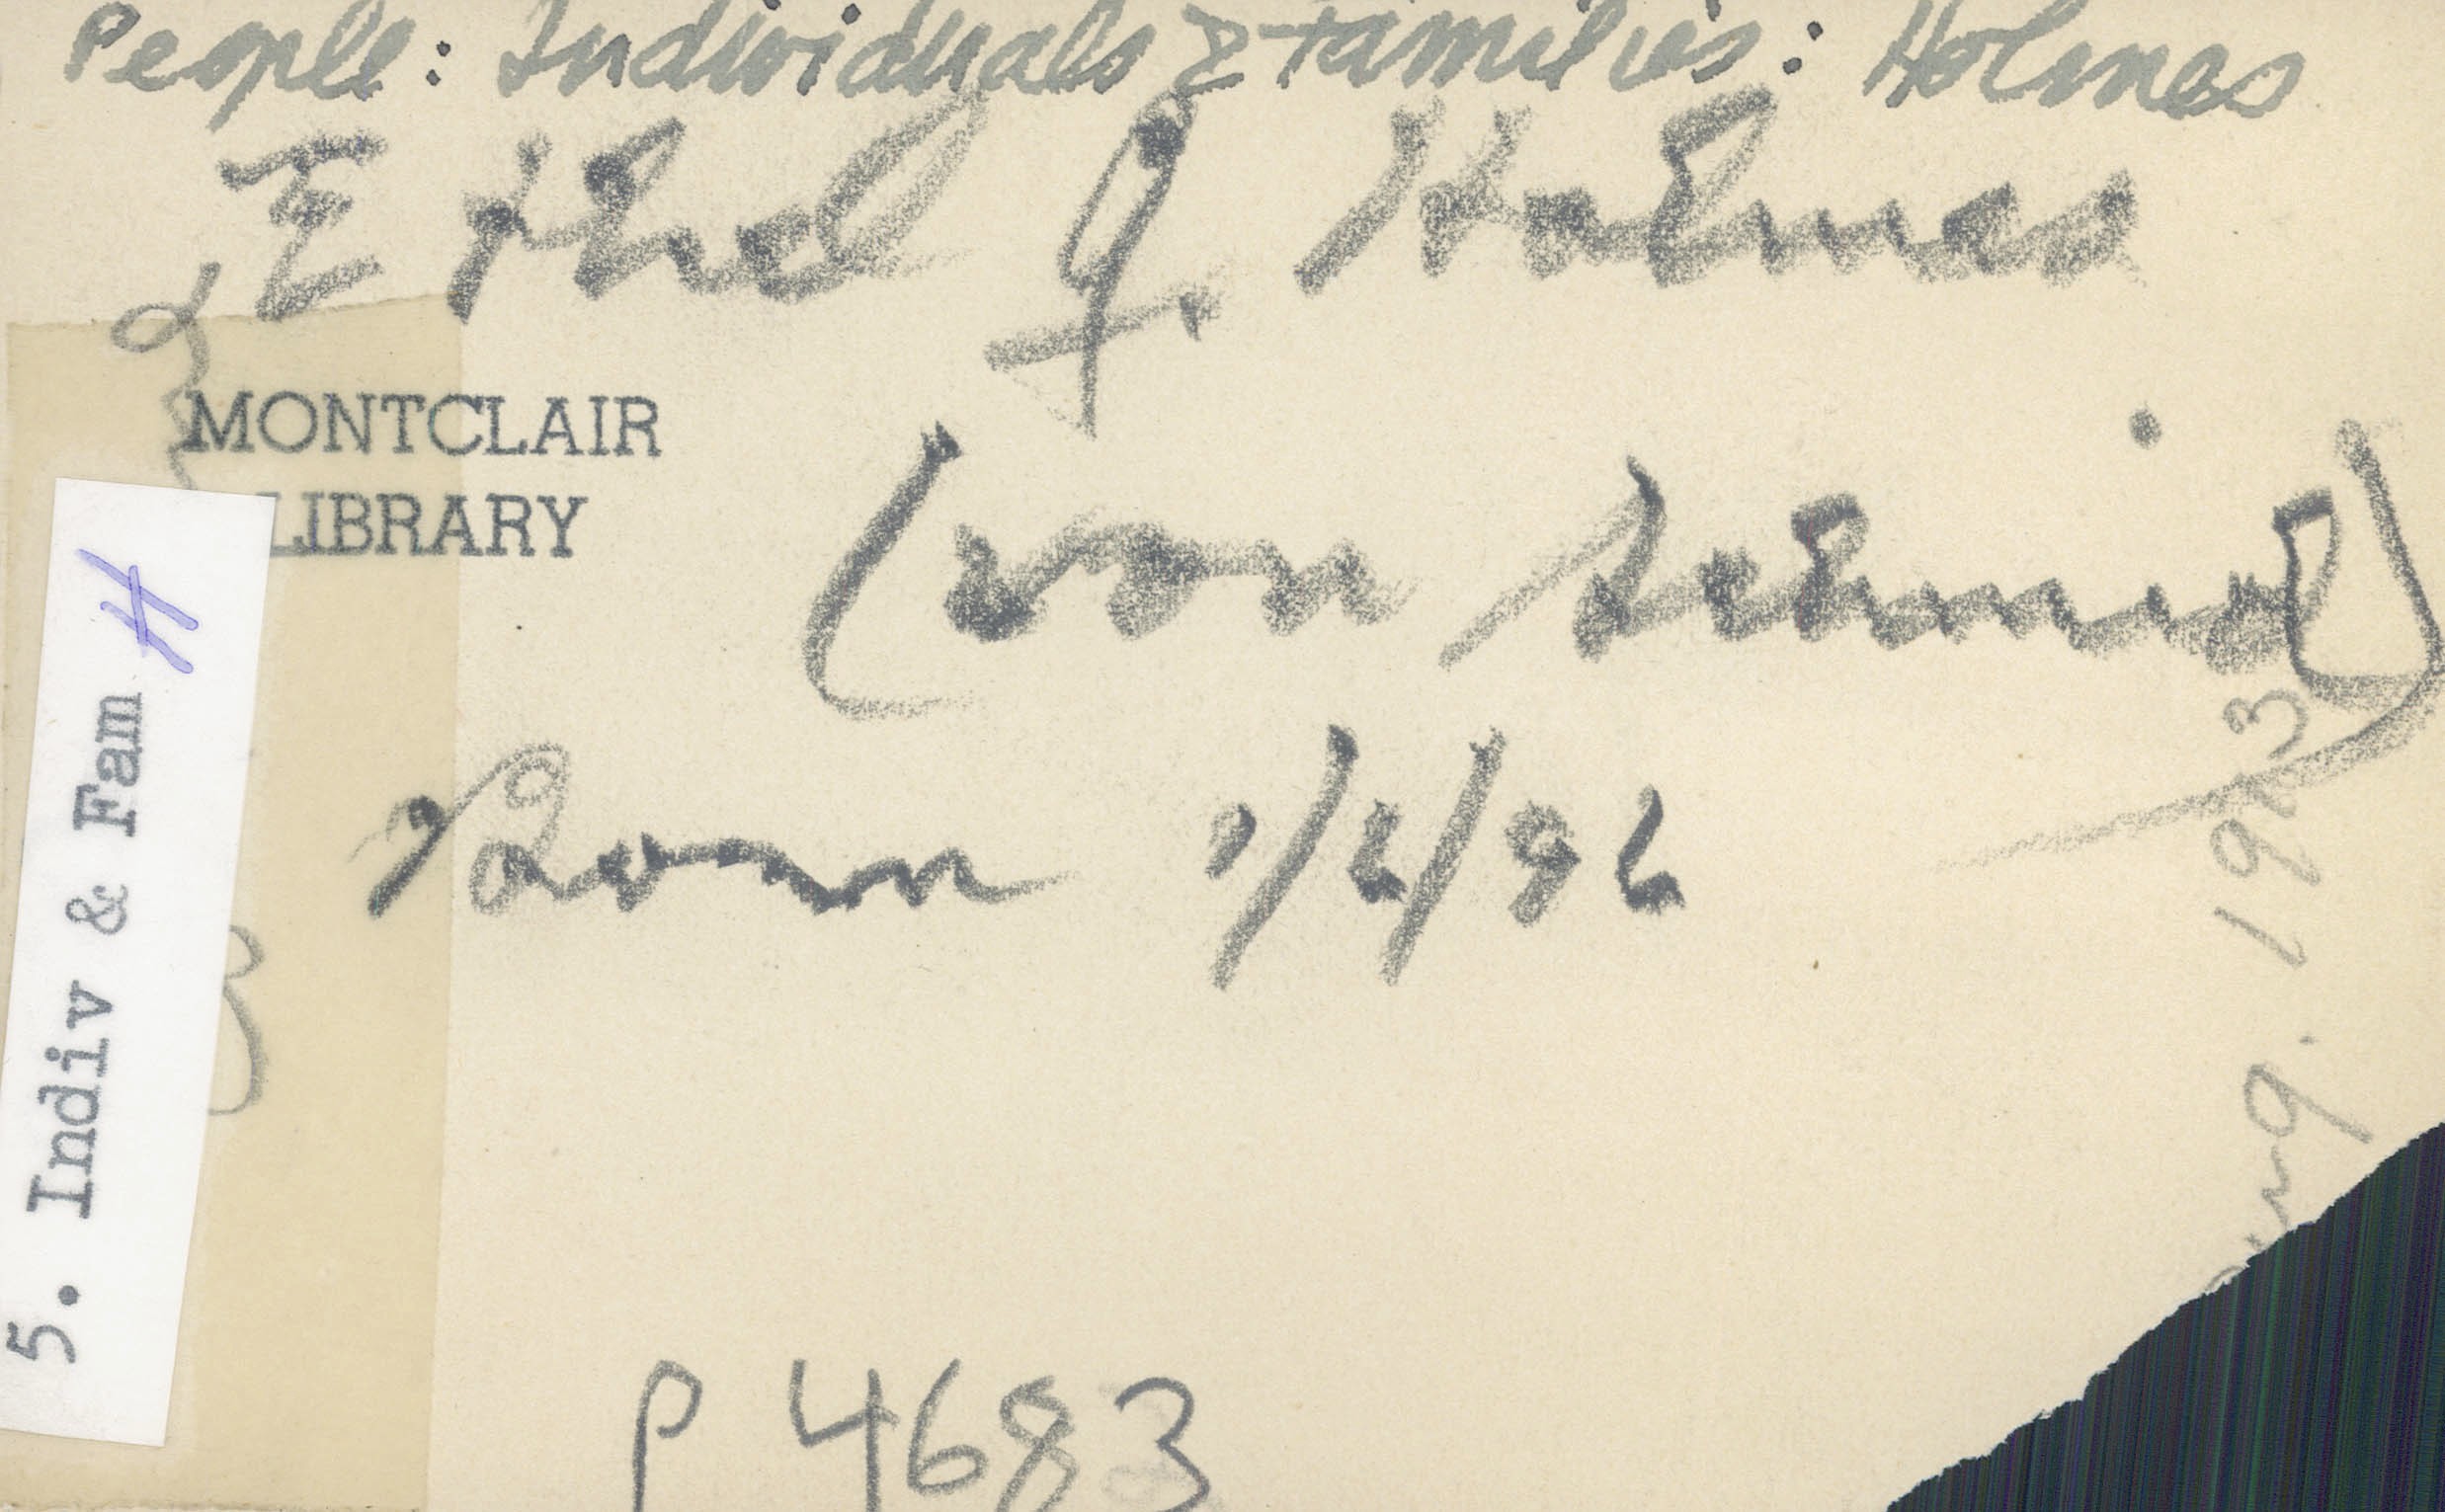 People: Individuals & Families: Holmes
Ethel J. Holmes
MONTCLAIR
LIBRARY
(von Schmid)
Born 1/2/96
5. Indiv & Fam H
P 4683